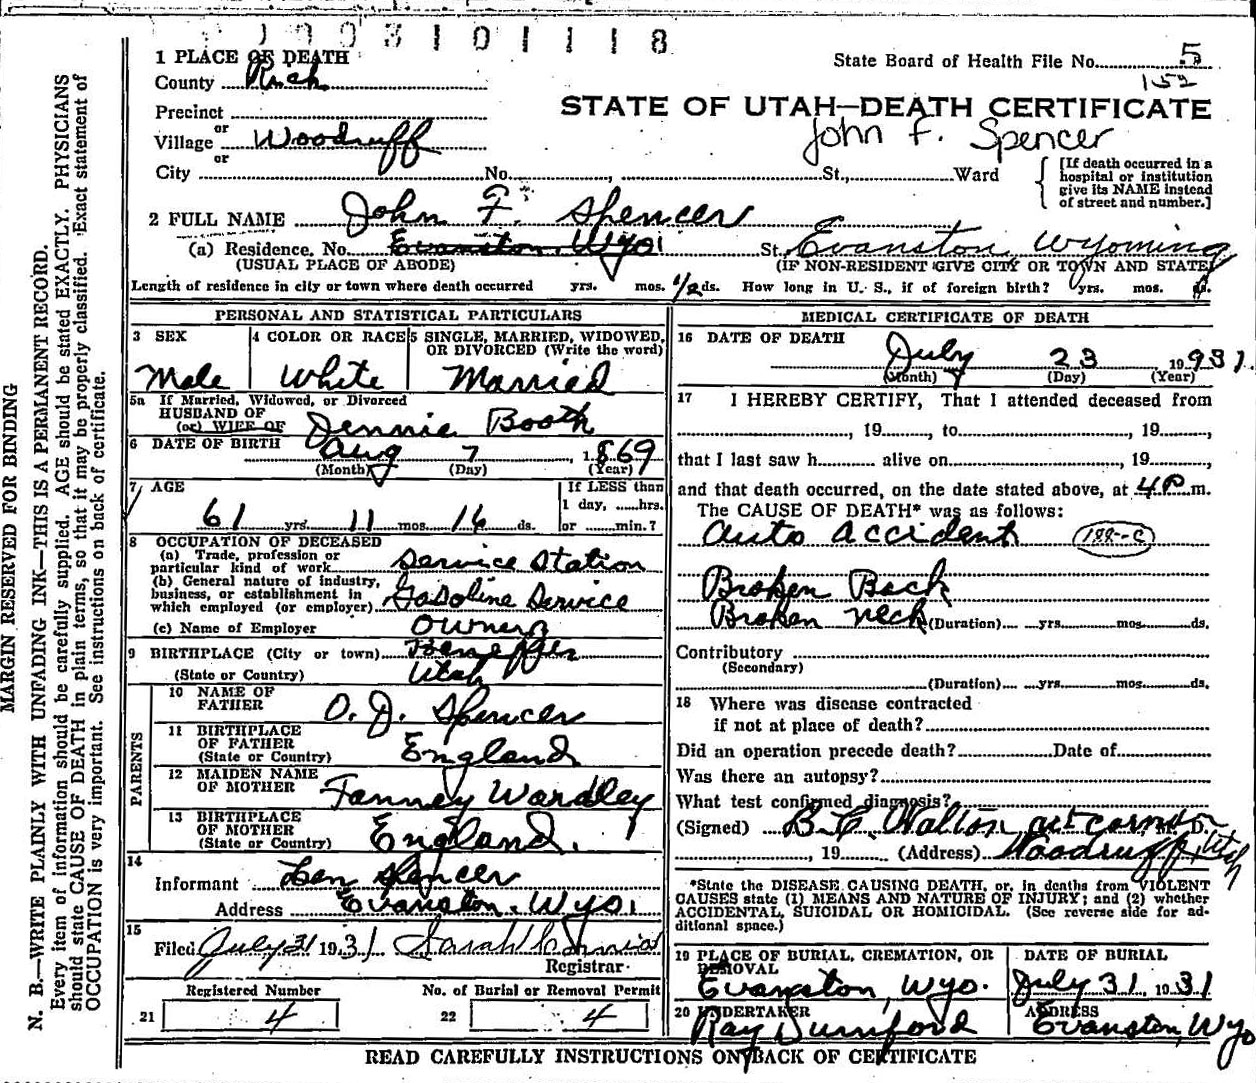 1003101118
State Board of Health File No. 5
152
1 PLACE OF DEATH
County Rich
STATE OF UTAH—DEATH CERTIFICATE
Precinct
Village or Woodruff
John F. Spencer
or
City No. , St., Ward
[If death occurred in a
hospital or institution
give its NAME instead
of street and number.]
2 FULL NAME John F. Spencer
(a) Residence, No. Evanston, Wyo. St. Evanston, Wyoming
(USUAL PLACE OF ABODE) (IF NON-RESIDENT GIVE CITY OR TOWN AND STATE)
Length of residence in city or town where death occurred yrs. mos. 1/2 ds. How long in U. S., if of foreign birth? yrs. mos. ds.
PERSONAL AND STATISTICAL PARTICULARS
3 SEX
Male
4 COLOR OR RACE
White
5 SINGLE, MARRIED, WIDOWED,
OR DIVORCED (Write the word)
Married
5a If Married, Widowed, or Divorced
HUSBAND OF
(or) WIFE OF Jennie Booth
6 DATE OF BIRTH Aug 7, 1869
(Month) (Day) (Year)
7 AGE
61 yrs. 11 mos. 16 ds.
If LESS than
1 day, ......hrs.
or ......min.?
8 OCCUPATION OF DECEASED
(a) Trade, profession or
particular kind of work Service Station
(b) General nature of industry,
business, or establishment in
which employed (or employer) Gasoline Service
(c) Name of Employer Owner
9 BIRTHPLACE (City or town)
(State or Country) Utah
PARENTS
10 NAME OF
FATHER O. J. Spencer
11 BIRTHPLACE
OF FATHER
(State or Country) England
12 MAIDEN NAME
OF MOTHER Fanney Wardley
13 BIRTHPLACE
OF MOTHER
(State or Country) England.
14
Informant Len Spencer
Address Evanston, Wyo.
15
Filed July 31 1931 Sarah
Registrar
Registered Number
21 4
No. of Burial or Removal Permit
22 4
MEDICAL CERTIFICATE OF DEATH
16 DATE OF DEATH
July 23 1931.
(Month) (Day) (Year)
17 I HEREBY CERTIFY, That I attended deceased from
, 19 , to , 19 ,
that I last saw h alive on , 19 ,
and that death occurred, on the date stated above, at 4 P m.
The CAUSE OF DEATH* was as follows:
Auto Accident 188-C
Broken Back
Broken Neck (Duration) yrs. mos. ds.
Contributory
(Secondary)
(Duration) yrs. mos. ds.
18 Where was disease contracted
if not at place of death?
Did an operation precede death? Date of
Was there an autopsy?
What test confirmed diagnosis?
(Signed) B. C. Walton M. D.
, 19 (Address) Woodruff, Utah
*State the DISEASE CAUSING DEATH, or, in deaths from VIOLENT
CAUSES state (1) MEANS AND NATURE OF INJURY; and (2) whether
ACCIDENTAL, SUICIDAL OR HOMICIDAL. (See reverse side for ad-
ditional space.)
19 PLACE OF BURIAL, CREMATION, OR
REMOVAL
Evanston, Wyo.
DATE OF BURIAL
July 31 1931
20 UNDERTAKER
Ray Durnford
ADDRESS
Evanston, Wyo
READ CAREFULLY INSTRUCTIONS ON BACK OF CERTIFICATE
MARGIN RESERVED FOR BINDING
N. B.—WRITE PLAINLY WITH UNFADING INK—THIS IS A PERMANENT RECORD.
Every item of information should be carefully supplied. AGE should be stated EXACTLY. PHYSICIANS
should state CAUSE OF DEATH in plain terms, so that it may be properly classified. Exact statement of
OCCUPATION is very important. See instructions on back of certificate.